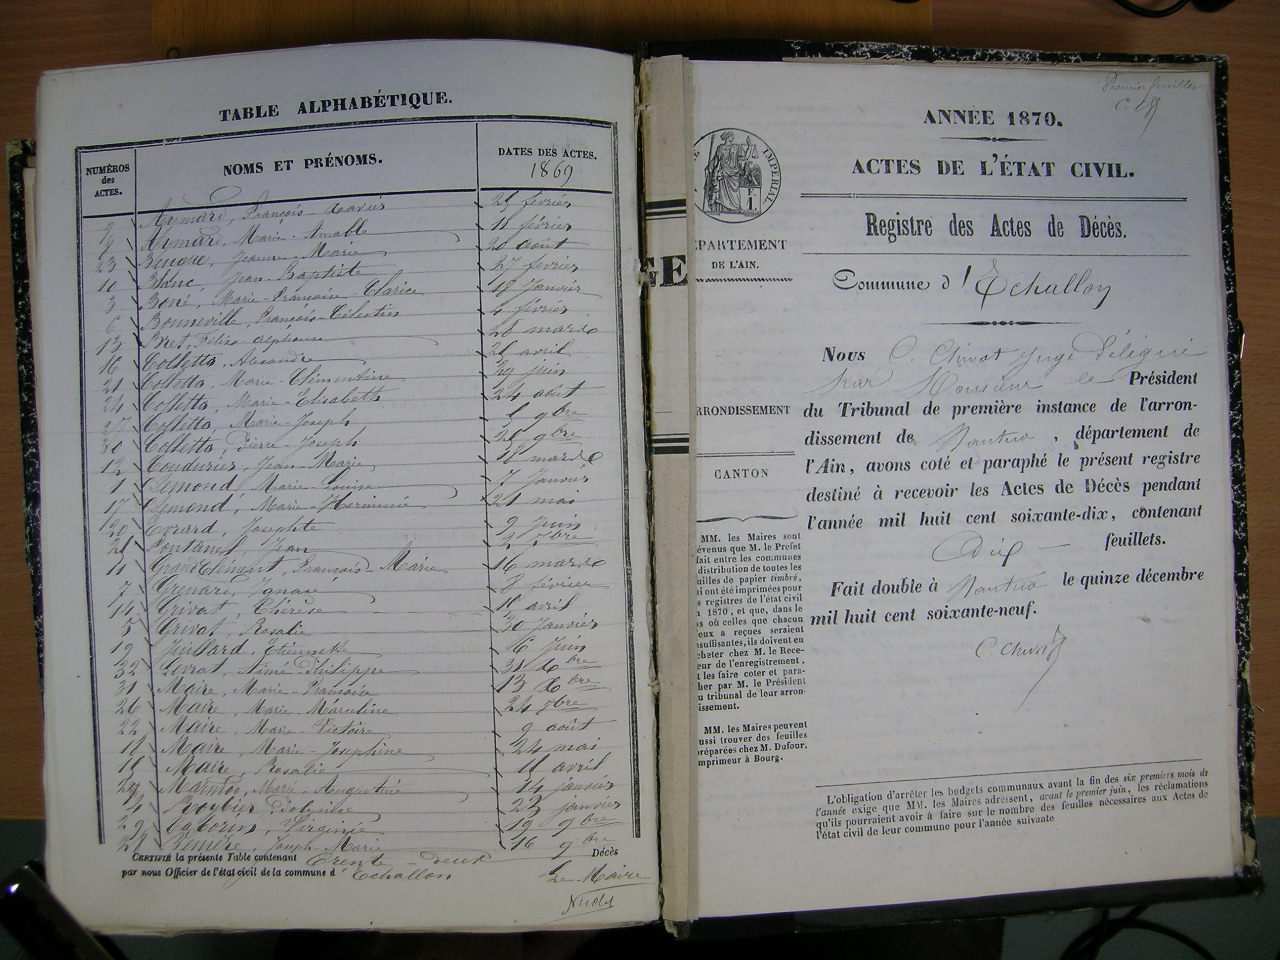 TABLE ALPHABÉTIQUE.
NUMÉROS des ACTES.
NOMS ET PRÉNOMS.
DATES DES ACTES.
1869
Aymard, François-Xavier février
Aymard, Marie-Amable 11 février
23 Jeanne-Marie 20 août
10 Blanc, Jean-Baptiste 27 février
3 Marie-Françoise-Clarice 18 janvier
6 Bonneville, François-Célestin 4 février
13 Félix-Alphonse mars
16 Colletta, Alexandre avril
21 Colletta, Marie-Clémentine 29 juin
24 Colletta, Marie-Elisabeth 24 août
27 Colletta, Marie-Joseph 9bre
30 Colletta, Pierre-Joseph 9bre
12 Jean-Marie, 18 mars
1 Marie-Louise 7 janvier
17 Marie-Herminie 21 mai
20 Josephte 9 juin
Fontanet, Jean 7bre
11 François-Marie 16 mars
7 février
14 Grivat, Thérèse 11 avril
5 Grivat, Rosalie 30 janvier
19 Juillard, Etiennette 6 juin
32 Levrat, Aimé-Philippe 31 Xbre
31 Maire, Marie-Françoise 13 Xbre
26 Maire, Marie-Marceline 24 7bre
22 Maire, Marie-Victoire 9 août
18 Maire, Marie-Josephine 24 mai
Maire, Rosalie 11 avril
Marie-Augustine 14 janvier
4 23 janvier
29 Virginie 19 9bre
Joseph-Marie 16 9bre
CERTIFIÉ la présente Table contenant Trente-deux Décès
par nous Officier de l'état civil de la commune d'Echallon
Le Maire
GE
IMPERIAL
F. 1.
ÉPARTEMENT
DE L'AIN.
RRONDISSEMENT
CANTON
MM. les Maires sont
évenus que M. le Prefet
fait entre les communes
distribution de toutes les
uilles de papier timbré,
ui ont été imprimées pour
s registres de l'état civil
n 1870, et que, dans le
s où celles que chacun
eux a reçues seraient
suffisantes, ils doivent en
cheter chez M. le Rece-
eur de l'enregistrement,
t les faire coter et para-
her par M. le Président
u tribunal de leur arron-
issement.
MM. les Maires peuvent
ussi trouver des feuilles
réparées chez M. Dufour,
mprimeur à Bourg.
Premier feuillet
ANNÉE 1870.
ACTES DE L'ÉTAT CIVIL.
Registre des Actes de Décès.
Commune d'Echallon
Nous C. Chivot Juge Délégué
par Monsieur le Président
du Tribunal de première instance de l'arron-
dissement de Nantua, département de
l'Ain, avons coté et paraphé le présent registre
destiné à recevoir les Actes de Décès pendant
l'année mil huit cent soixante-dix, contenant
Dix feuillets.
Fait double à Nantua le quinze décembre
mil huit cent soixante-neuf.
C. Chivot
L'obligation d'arrêter les budgets communaux avant la fin des six premiers mois de
l'année exige que MM. les Maires adressent, avant le premier juin, les réclamations
qu'ils pourraient avoir à faire sur le nombre des feuilles nécessaires aux Actes de
l'état civil de leur commune pour l'année suivante